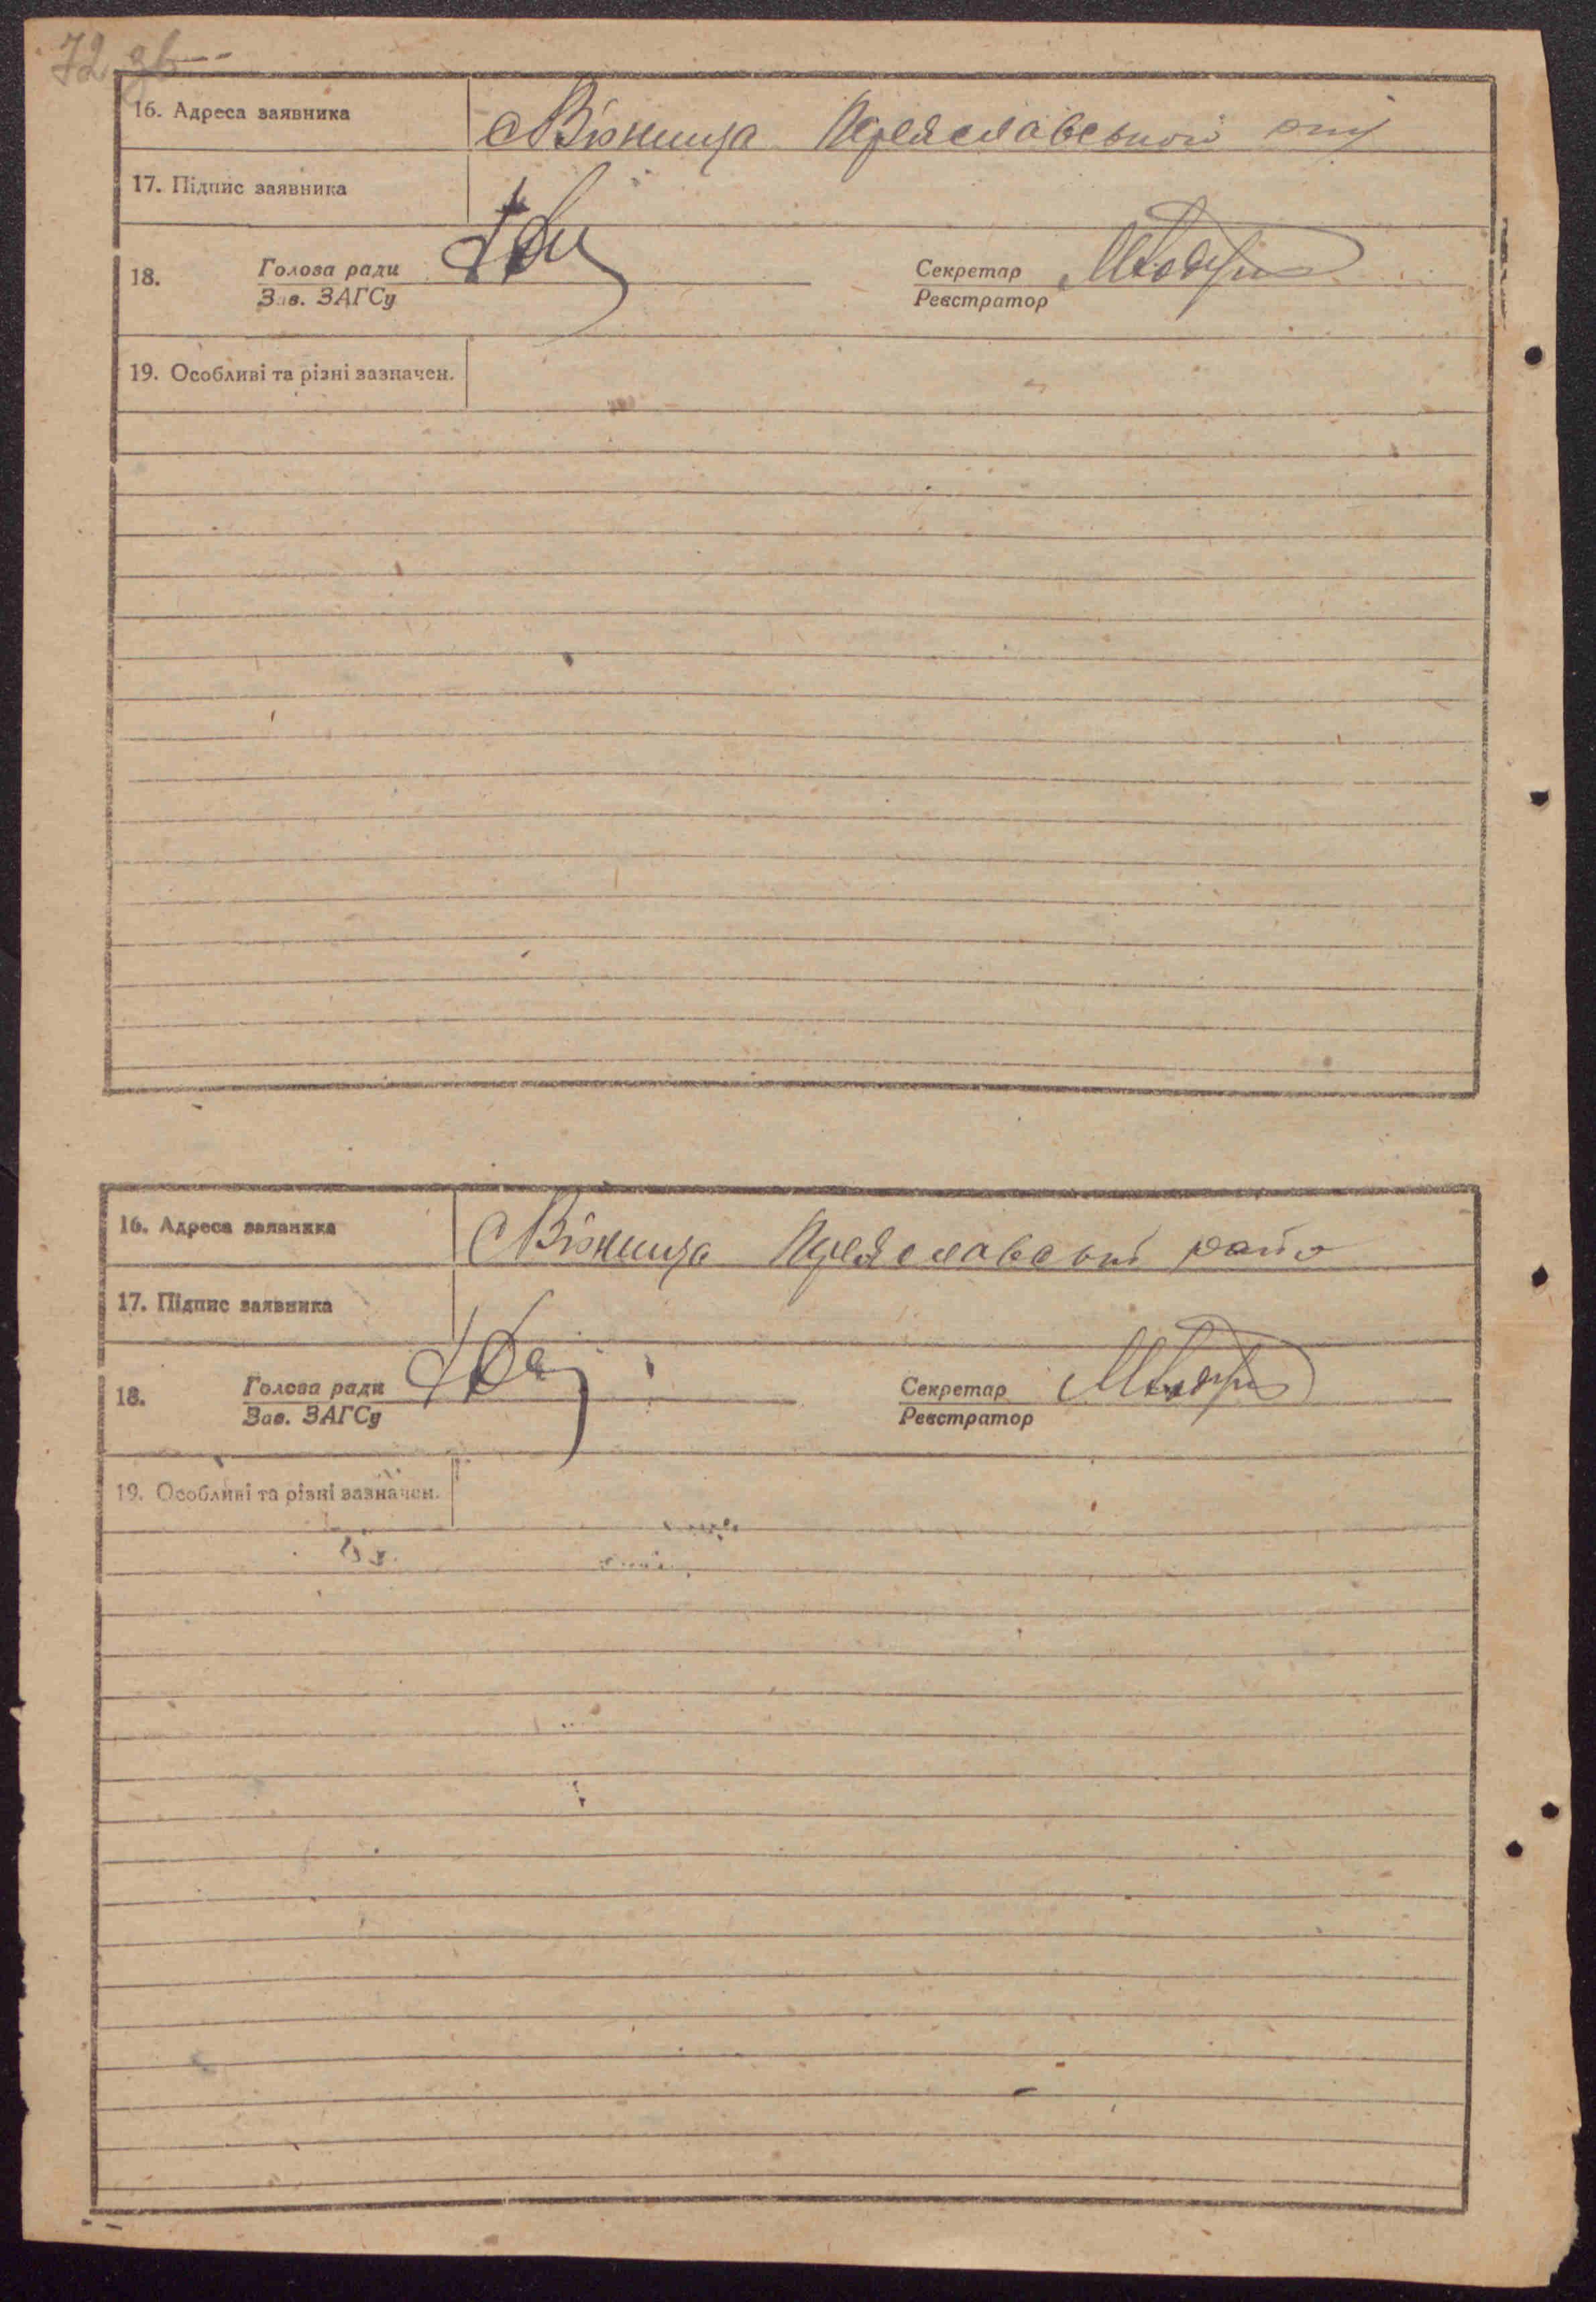 72 зв
16. Адреса заявника С Вюнища Переяславської
17. Підпис заявника
18. Голова ради Секретар
Зав. ЗАГСу Реєстратор
19. Особливі та різні зазначен.
16. Адреса заявника С Вюнища Переяславські
17. Підпис заявника
18. Голова ради Секретар
Зав. ЗАГСу Реєстратор
19. Особливі та різні зазначен.